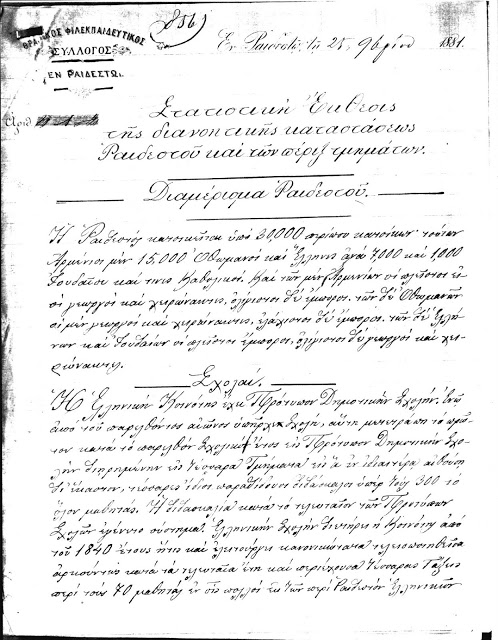 856)
ΘΡΑΚΙΚΟΣ ΦΙΛΕΚΠΑΙΔΕΥΤΙΚΟΣ
ΣΥΛΛΟΓΟΣ
ΕΝ ΡΑΙΔΕΣΤΩι
Ἐν Ῥαιδεστῷ τῇ 25 9βρίου 1881.
Ἀριθ
Στατιστικὴ Ἔκθεσις
τῆς διανοητικῆς καταστάσεως
Ῥαιδεστοῦ καὶ τῶν πέριξ τμημάτων.
Διαμέρισμα Ῥαιδεστοῦ.
Ἡ Ῥαιδεστὸς κατοικεῖται ὑπὸ 30,000 περίπου κατοίκων· τούτων
Ἀρμένιοι μὲν 15,000 Ὀθωμανοὶ καὶ Ἕλληνες ἀνὰ 7,000 καὶ 1,000
Ἰουδαῖοι καί τινες Καθολικοί. Καὶ τῶν μὲν Ἀρμενίων οἱ πλεῖστοι εἰ-
σι γεωργοὶ καὶ χειρώνακτες, ὀλίγιστοι δὲ ἔμποροι. τῶν δὲ Ὀθωμανῶν
οἱ μὲν γεωργοὶ καὶ χειρώνακτες, ἐλάχιστοι δὲ ἔμποροι. τῶν δὲ Ἑλλή-
νων καὶ Ἰουδαίων οἱ πλεῖστοι ἔμποροι, ὀλίγιστοι δὲ γεωργοὶ καὶ χει-
ρώνακτες.
Σχολαί.
Ἡ Ἑλληνικὴ Κοινότης ἔχει Πρότυπον Δημοτικὴν Σχολήν· ἐνῷ
ἀπὸ τοῦ παρελθόντος αἰῶνος ὑπῆρχε Σχολή, αὕτη μετετράπη τὸ πρῶ-
τον κατὰ τὸ παρελθὸν σχολικὸν ἔτος εἰς Πρότυπον Δημοτικὴν Σχο-
λὴν διῃρημένην εἰς τέσσαρα Τμήματα εἰς ἃ ἐν ἰδιαιτέρᾳ αἰθούσῃ
δι' ἕκαστον, τέσσαρες ἰδίως παραδίδουσι διδάσκαλοι ὑπὲρ τοὺς 300 τὸ
ὅλον μαθητάς. Ἡ διδασκαλία κατὰ τὸ τῶν Προτύπων
Σχολῶν σύστημα. Ἑλληνικὴν Σχολὴν διατηρεῖ ἡ Κοινότης ἀπὸ
τοῦ 1840 ἔτους ἥτις καὶ λειτουργεῖ κανονικώτατα τελειοποιηθεῖσα
ἀρκούντως κατὰ τὰ τελευταῖα ἔτη καὶ περιέχουσα τέσσαρας Τάξεις
περὶ τοὺς 70 μαθητὰς ἐν οἷς πολλοὶ ἐκ τῶν περὶ Ῥαιδεστὸν Ἑλληνικῶν